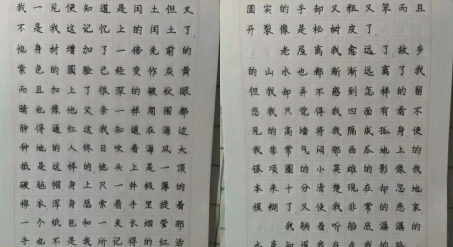 我一见便知道是闰土但又
不是我记忆上的闰土了
他身材增加了一倍先前的
紫色的圆脸已经变作灰黄
而且加上了很深的皱纹眼
睛也像他父亲一样周围都
肿得通红这我知道在海边
种地的人终日吹着海风大
抵是这样的他头上是一顶
破毡帽身上只一件极薄的
棉衣浑身瑟索着手里提着
一个纸包和一支长烟管那
手也不是我所记得的红活
圆实的手却又粗又笨而且
开裂像是松树皮了
老屋离我愈远了故乡
的山水也都渐渐远离了我
但我却并不感到怎样的留
恋我只觉得我四面有看不
见的高墙将我隔成孤身使
我非常气闷那西瓜地上的
银项圈的小英雄的影像我
本来十分清楚现在却忽地
模糊了又使我非常的悲哀
我躺着听船底潺潺的